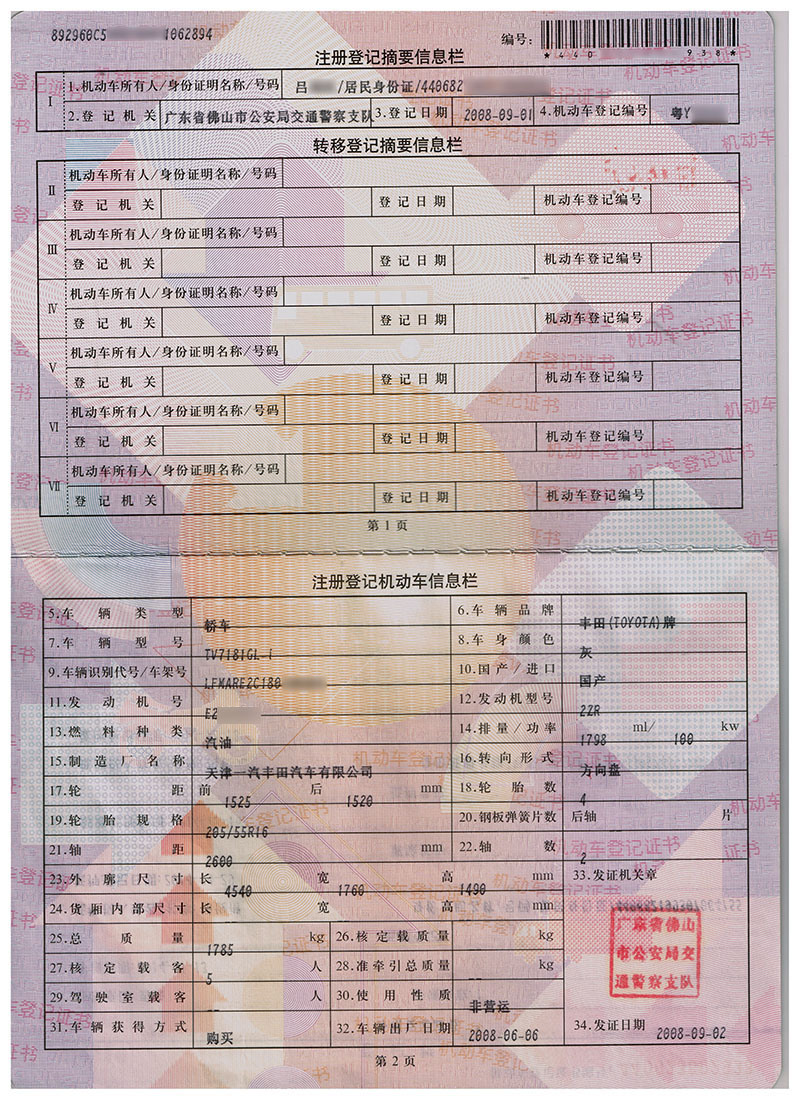 892960C5 1062894
编号:
*44D 938*
注册登记摘要信息栏
I 1.机动车所有人/身份证明名称/号码 吕 /居民身份证/440682
2.登记机关 广东省佛山市公安局交通警察支队 3.登记日期 2008-09-01 4.机动车登记编号 粤Y
转移登记摘要信息栏
II 机动车所有人/身份证明名称/号码
登记机关 登记日期 机动车登记编号
III 机动车所有人/身份证明名称/号码
登记机关 登记日期 机动车登记编号
IV 机动车所有人/身份证明名称/号码
登记机关 登记日期 机动车登记编号
V 机动车所有人/身份证明名称/号码
登记机关 登记日期 机动车登记编号
VI 机动车所有人/身份证明名称/号码
登记机关 登记日期 机动车登记编号
VII 机动车所有人/身份证明名称/号码
登记机关 登记日期 机动车登记编号
第1页
注册登记机动车信息栏
5.车辆类型 轿车 6.车辆品牌 丰田(TOYOTA)牌
7.车辆型号 TV7181GL-i 8.车身颜色 灰
9.车辆识别代号/车架号 LFMARE2C180 10.国产/进口 国产
11.发动机号 E2 12.发动机型号 2ZR
13.燃料种类 汽油 14.排量/功率 1798 ml/ 100 kw
15.制造厂名称 天津一汽丰田汽车有限公司 16.转向形式 方向盘
17.轮距 前 1525 后 1520 mm 18.轮胎数 4
19.轮胎规格 205/55R16 20.钢板弹簧片数 后轴 片
21.轴距 2600 mm 22.轴数 2
23.外廓尺寸 长 4540 宽 1760 高 1490 mm 33.发证机关章
24.货厢内部尺寸 长 宽 高 mm
25.总质量 1785 kg 26.核定载质量 kg
广东省佛山
市公安局交
通警察支队
27.核定载客 5 人 28.准牵引总质量 -- kg
29.驾驶室载客 -- 人 30.使用性质 非营运
31.车辆获得方式 购买 32.车辆出厂日期 2008-06-06 34.发证日期 2008-09-02
第2页